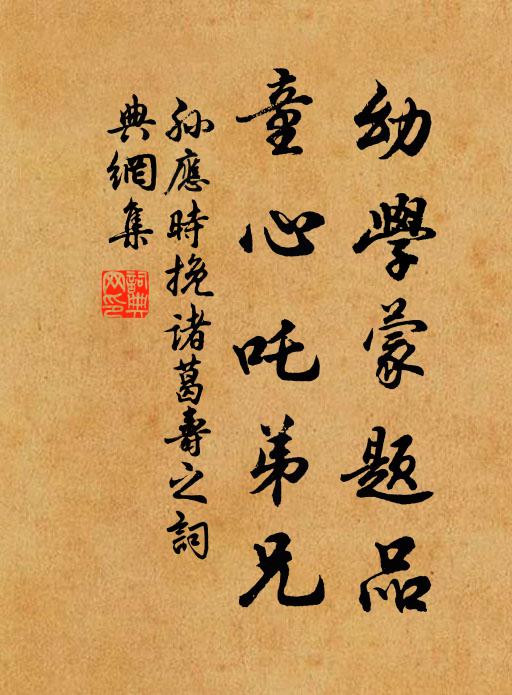 幼學蒙題品
童心吒弟兄
孫應時挽諸葛壽之詞
典網集
詞典网印